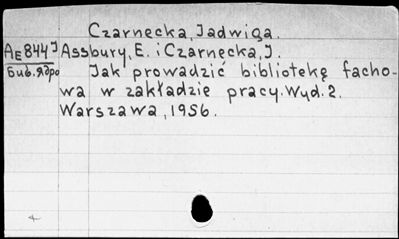 Czarnecka, Jadwiga.
AE844J Assbury, E. i Czarnecka, J.
Биб. Ядро Jak prowadzić bibliotekę facho-
wa w zakładzie pracy. Wyd. 2.
Warszawa, 1956.